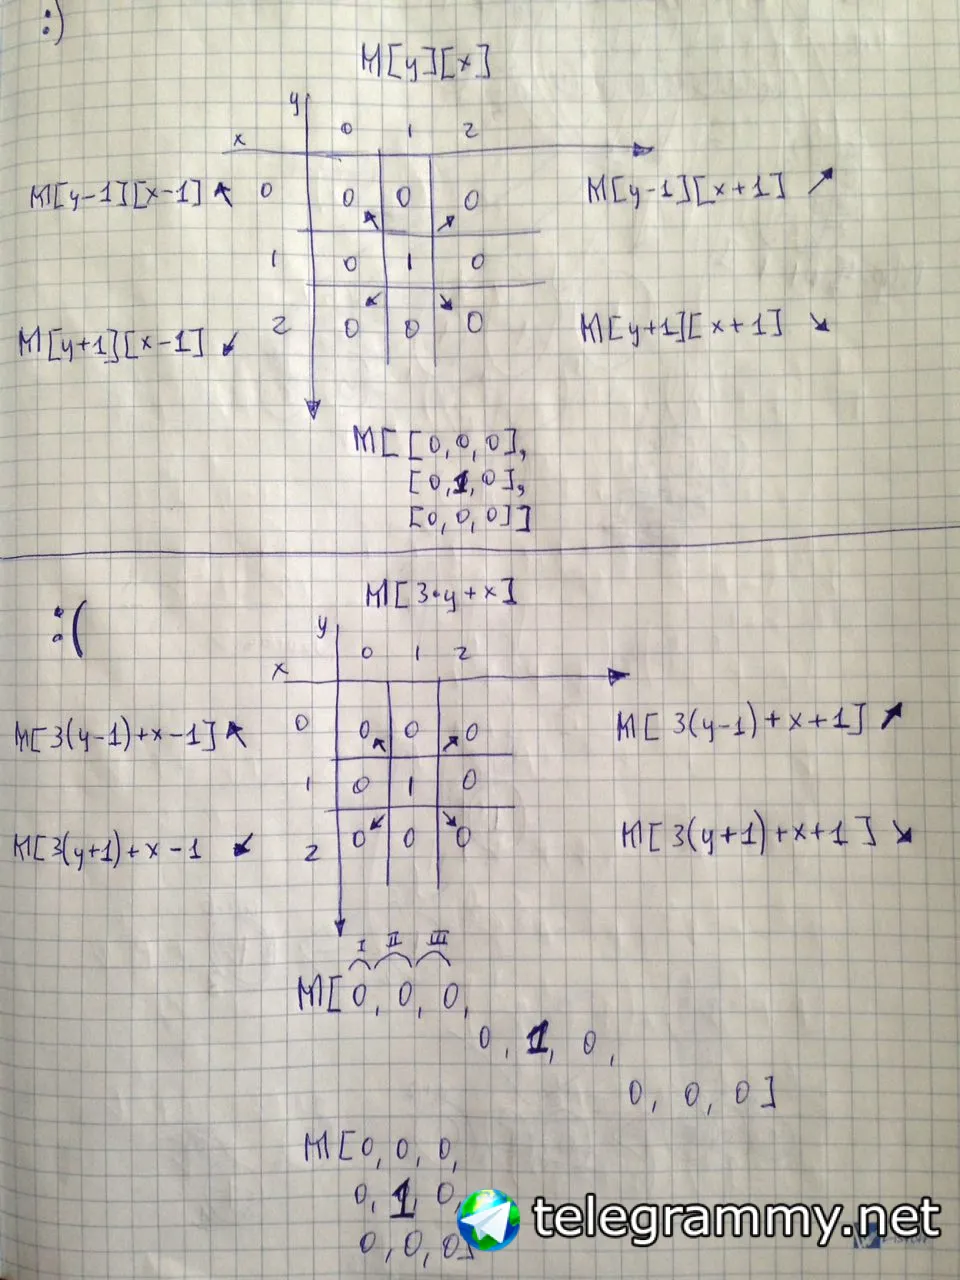 :)
M[y][x]
y
x 0 1 2
M[y-1][x-1] ↖ 0 0 0 0 M[y-1][x+1] ↗
↖ ↗
1 0 1 0
↙ ↘
M[y+1][x-1] ↙ 2 0 0 0 M[y+1][x+1] ↘
M[[0,0,0],
[0,1,0],
[0,0,0]]
M[3·y+x]
:(
y
x 0 1 2
M[3(y-1)+x-1] ↖ 0 0 0 0 M[3(y-1)+x+1] ↗
↖ ↗
1 0 1 0
↙ ↘
M[3(y+1)+x-1 ↙ 2 0 0 0 M[3(y+1)+x+1] ↘
I II III
M[0, 0, 0,
0, 1, 0,
0, 0, 0]
M[0, 0, 0,
0, 1, 0,
0, 0, 0]
telegrammy.net